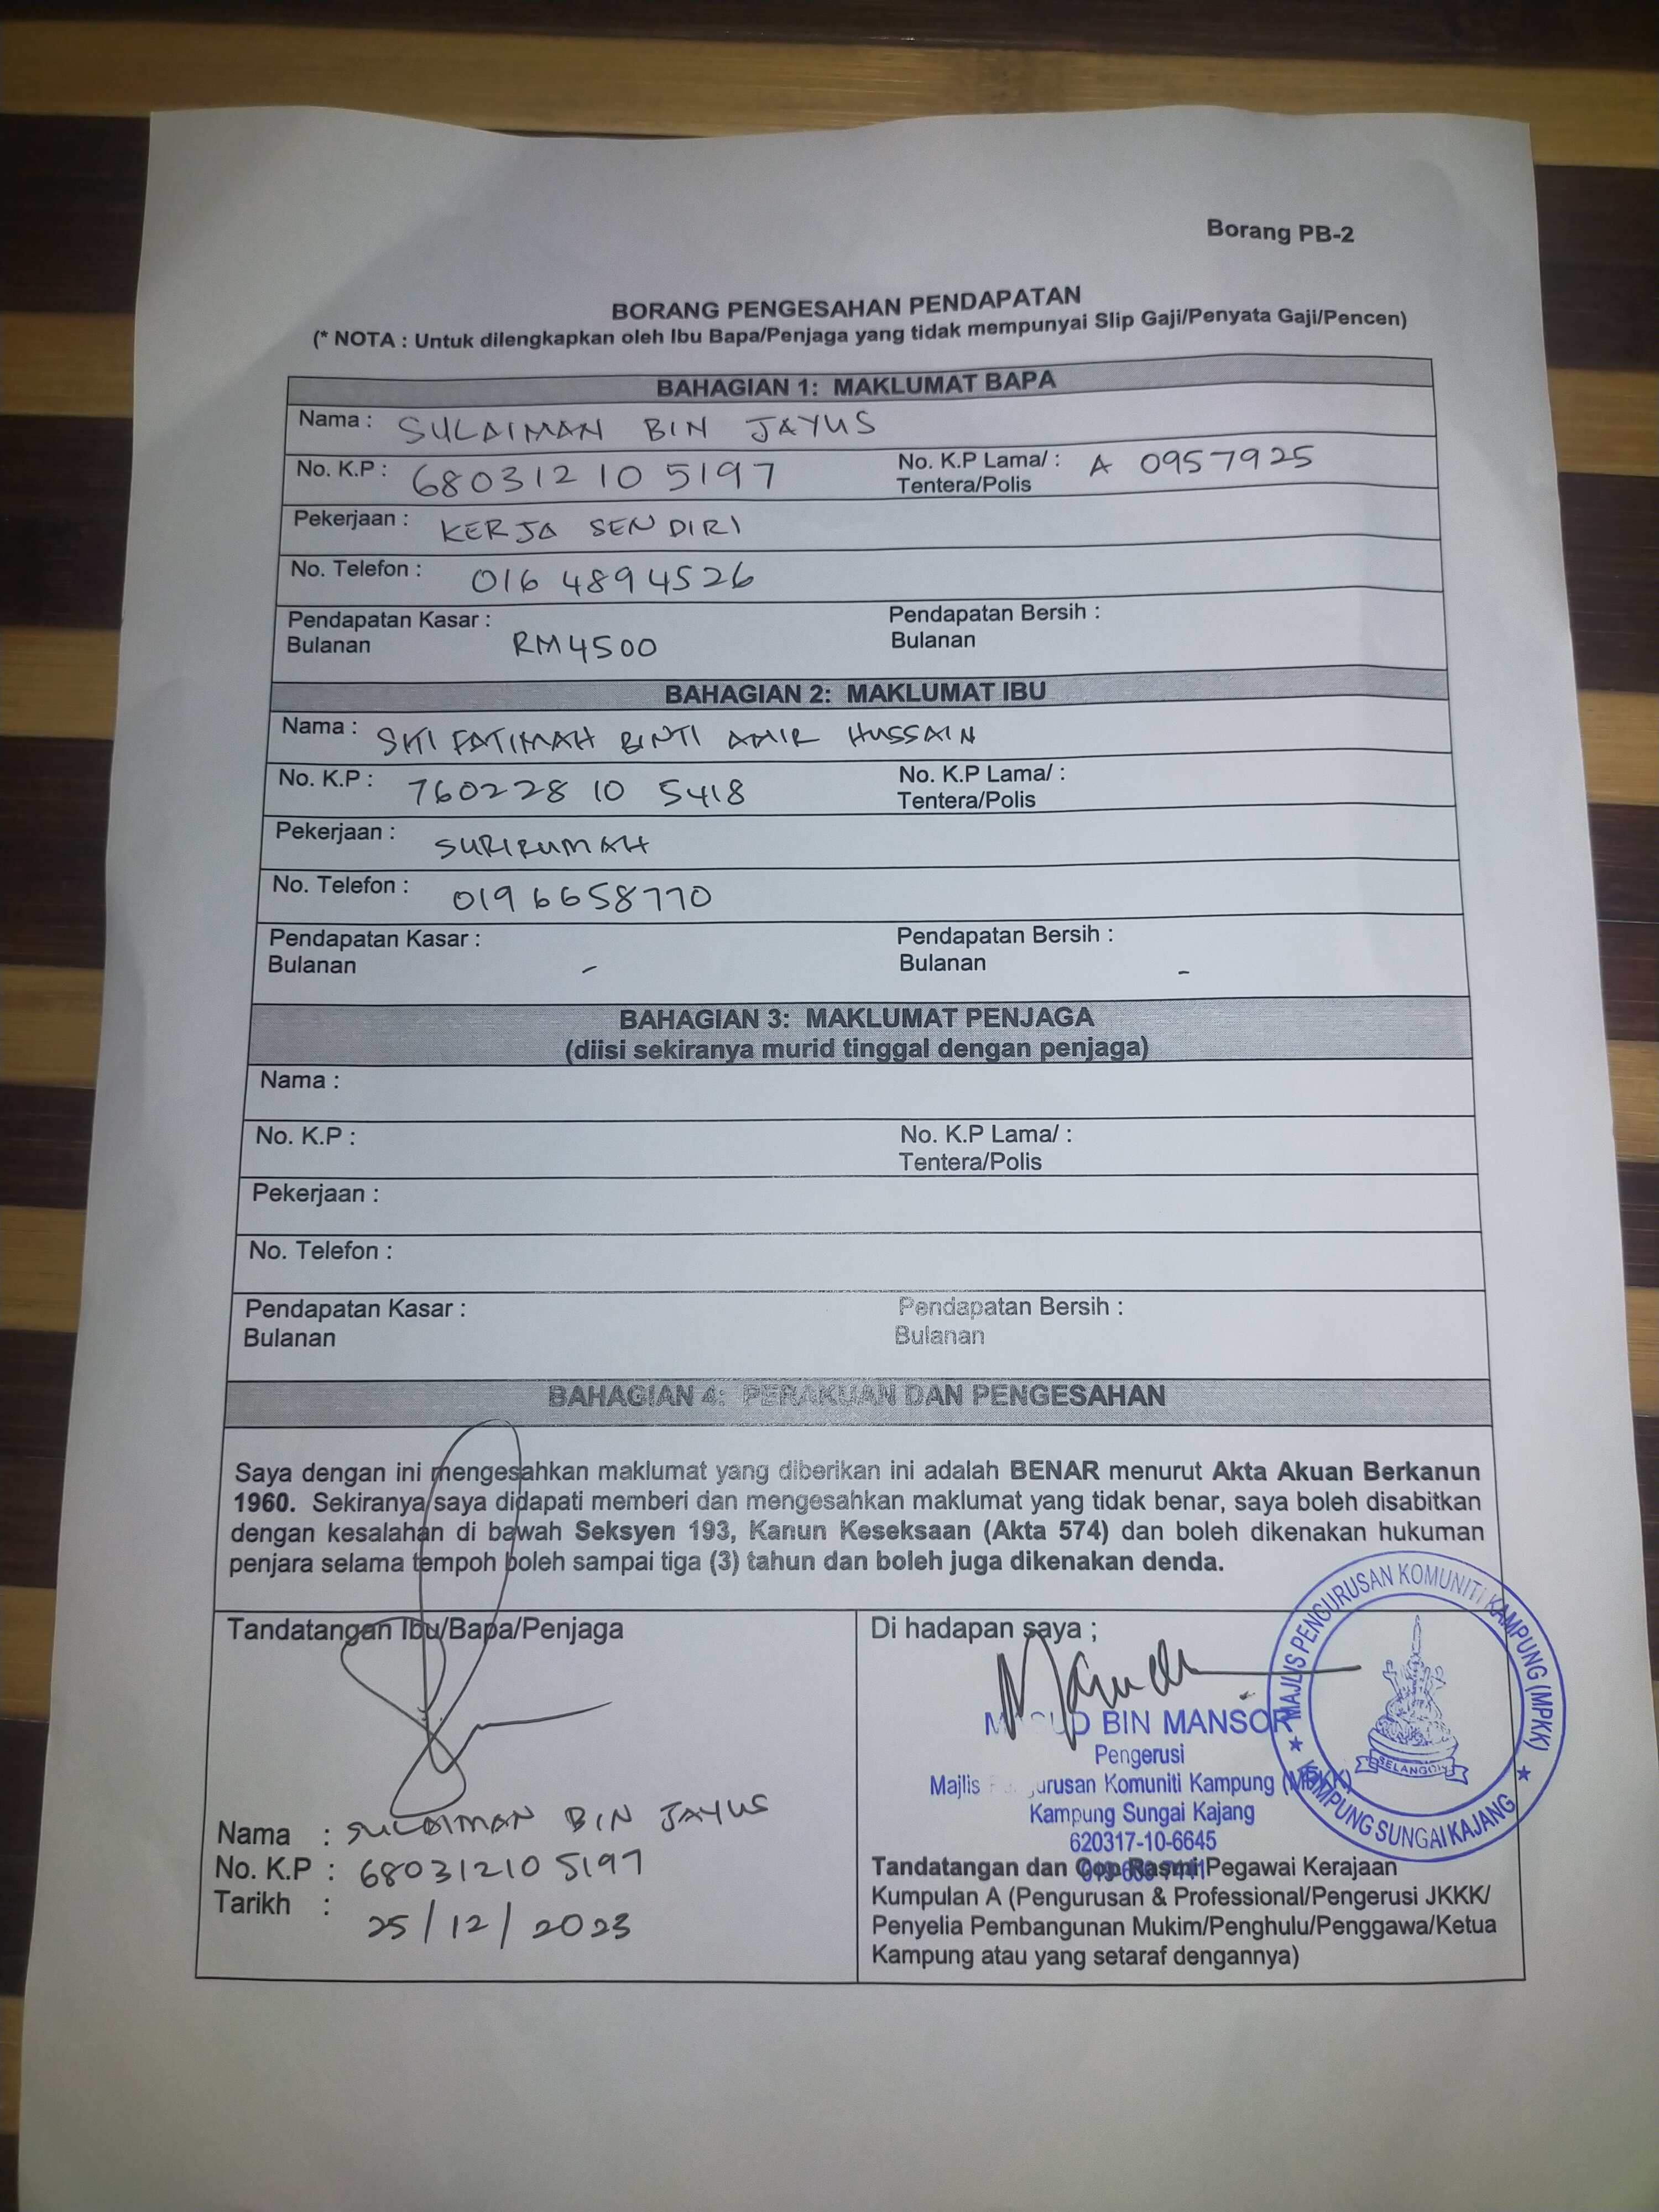 Borang PB-2
BORANG PENGESAHAN PENDAPATAN
(* NOTA : Untuk dilengkapkan oleh Ibu Bapa/Penjaga yang tidak mempunyai Slip Gaji/Penyata Gaji/Pencen)
BAHAGIAN 1: MAKLUMAT BAPA
Nama : SULAIMAN BIN JAYUS
No. K.P : 680312 10 5197 No. K.P Lama/ : A 0957925
Tentera/Polis
Pekerjaan : KERJA SENDIRI
No. Telefon : 016 4894526
Pendapatan Kasar : Pendapatan Bersih :
Bulanan RM4500 Bulanan
BAHAGIAN 2: MAKLUMAT IBU
Nama : SITI FATIMAH BINTI AMIR HUSSAIN
No. K.P : 760228 10 5418 No. K.P Lama/ :
Tentera/Polis
Pekerjaan : SURIRUMAH
No. Telefon : 019 6658770
Pendapatan Kasar : Pendapatan Bersih :
Bulanan - Bulanan -
BAHAGIAN 3: MAKLUMAT PENJAGA
(diisi sekiranya murid tinggal dengan penjaga)
Nama :
No. K.P : No. K.P Lama/ :
Tentera/Polis
Pekerjaan :
No. Telefon :
Pendapatan Kasar : Pendapatan Bersih :
Bulanan Bulanan
BAHAGIAN 4: PERAKUAN DAN PENGESAHAN
Saya dengan ini mengesahkan maklumat yang diberikan ini adalah BENAR menurut Akta Akuan Berkanun
1960. Sekiranya saya didapati memberi dan mengesahkan maklumat yang tidak benar, saya boleh disabitkan
dengan kesalahan di bawah Seksyen 193, Kanun Keseksaan (Akta 574) dan boleh dikenakan hukuman
penjara selama tempoh boleh sampai tiga (3) tahun dan boleh juga dikenakan denda.
Tandatangan Ibu/Bapa/Penjaga
Nama : SULAIMAN BIN JAYUS
No. K.P : 680312105197
Tarikh : 25/12/2023
Di hadapan saya ;
BIN MANSOR
Pengerusi
Majlis Pengurusan Komuniti Kampung (MPKK)
Kampung Sungai Kajang
620317-10-6645
Tandatangan dan Cop Rasmi Pegawai Kerajaan
Kumpulan A (Pengurusan & Professional/Pengerusi JKKK/
Penyelia Pembangunan Mukim/Penghulu/Penggawa/Ketua
Kampung atau yang setaraf dengannya)
★ MAJLIS PENGURUSAN KOMUNITI KAMPUNG (MPKK) ★
KAMPUNG SUNGAI KAJANG
SELANGOR